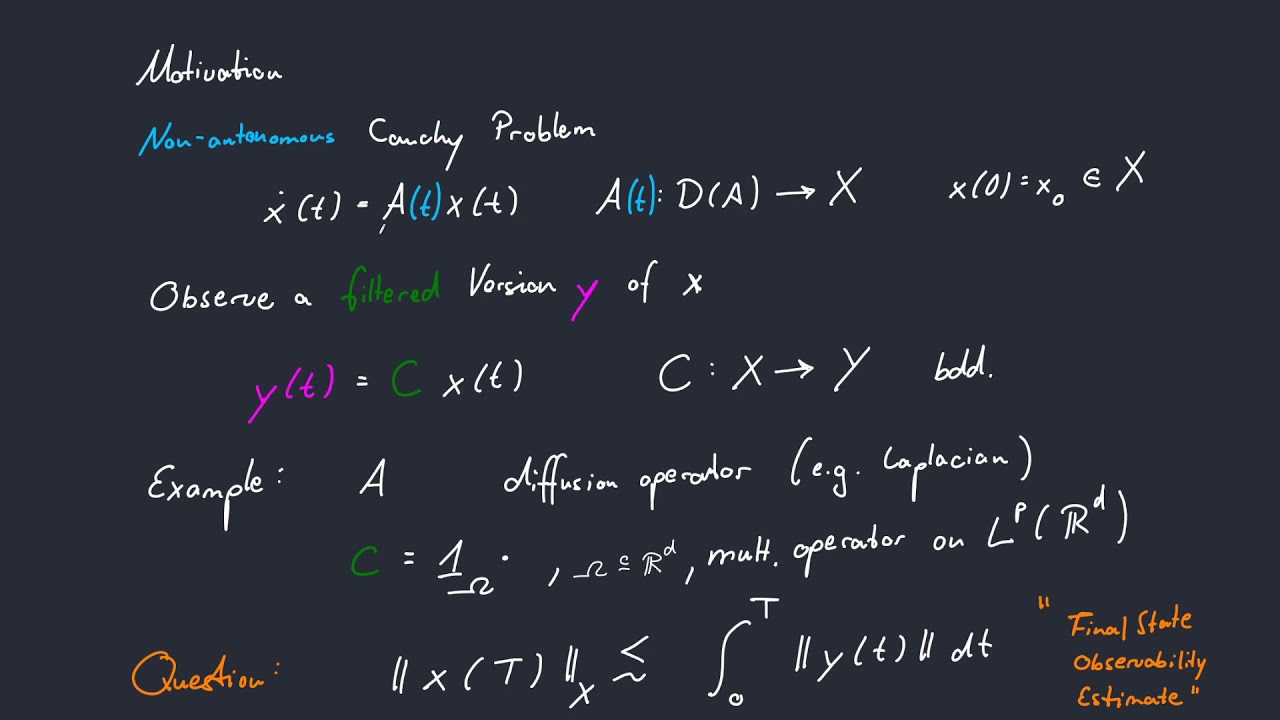 Motivation
Non-autonomous Cauchy Problem
ẋ(t) = A(t)x(t)   A(t): D(A) → X   x(0) = x₀ ∈ X
Observe a filtered Version y of x
y(t) = C x(t)   C : X → Y   bdd.
Example: A   diffusion operator (e.g. Laplacian)
C = 1_Ω · , Ω ⊆ ℝᵈ, mult. operator on Lᵖ(ℝᵈ)
Question: ‖x(T)‖_X ≲ ∫₀ᵀ ‖y(t)‖ dt
"Final State
Observability
Estimate"